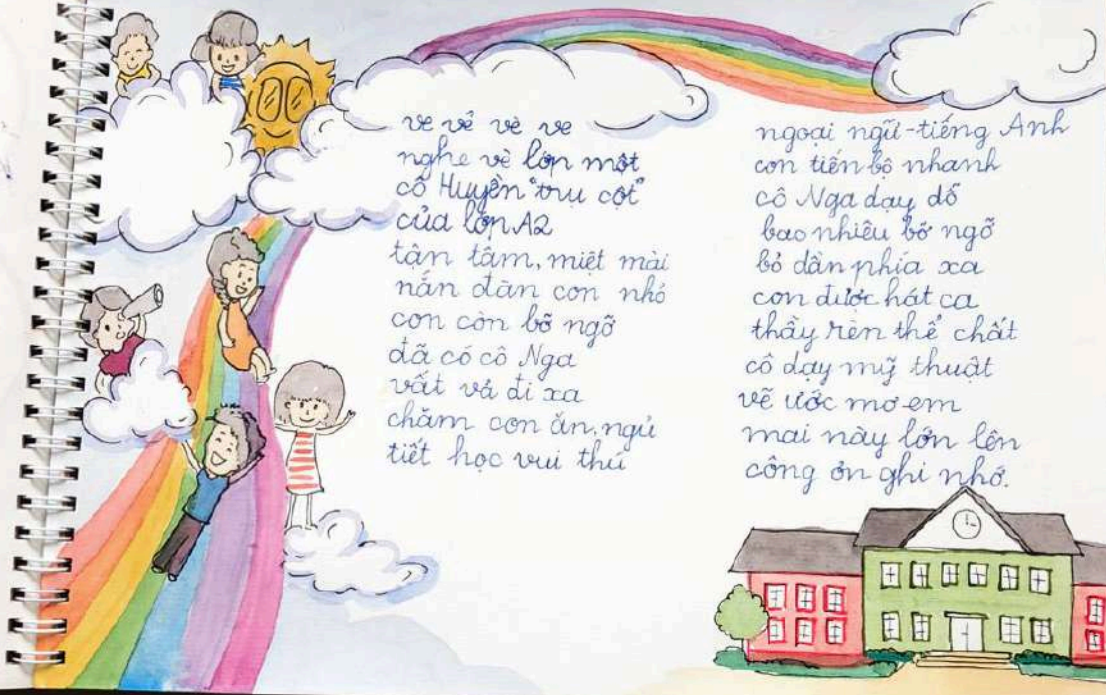 ve vẻ vè ve
nghe vè lớp một
cô Huyền "trụ cột"
của lớp A2
tận tâm, miệt mài
nắn đàn con nhỏ
con còn bỡ ngỡ
đã có cô Nga
vất vả đi xa
chăm con ăn, ngủ
tiết học vui thú
ngoại ngữ - tiếng Anh
con tiến bộ nhanh
cô Nga dạy dỗ
bao nhiêu bỡ ngỡ
bỏ dần phía xa
con được hát ca
thầy rèn thể chất
cô dạy mỹ thuật
vẽ ước mơ em
mai này lớn lên
công ơn ghi nhớ.